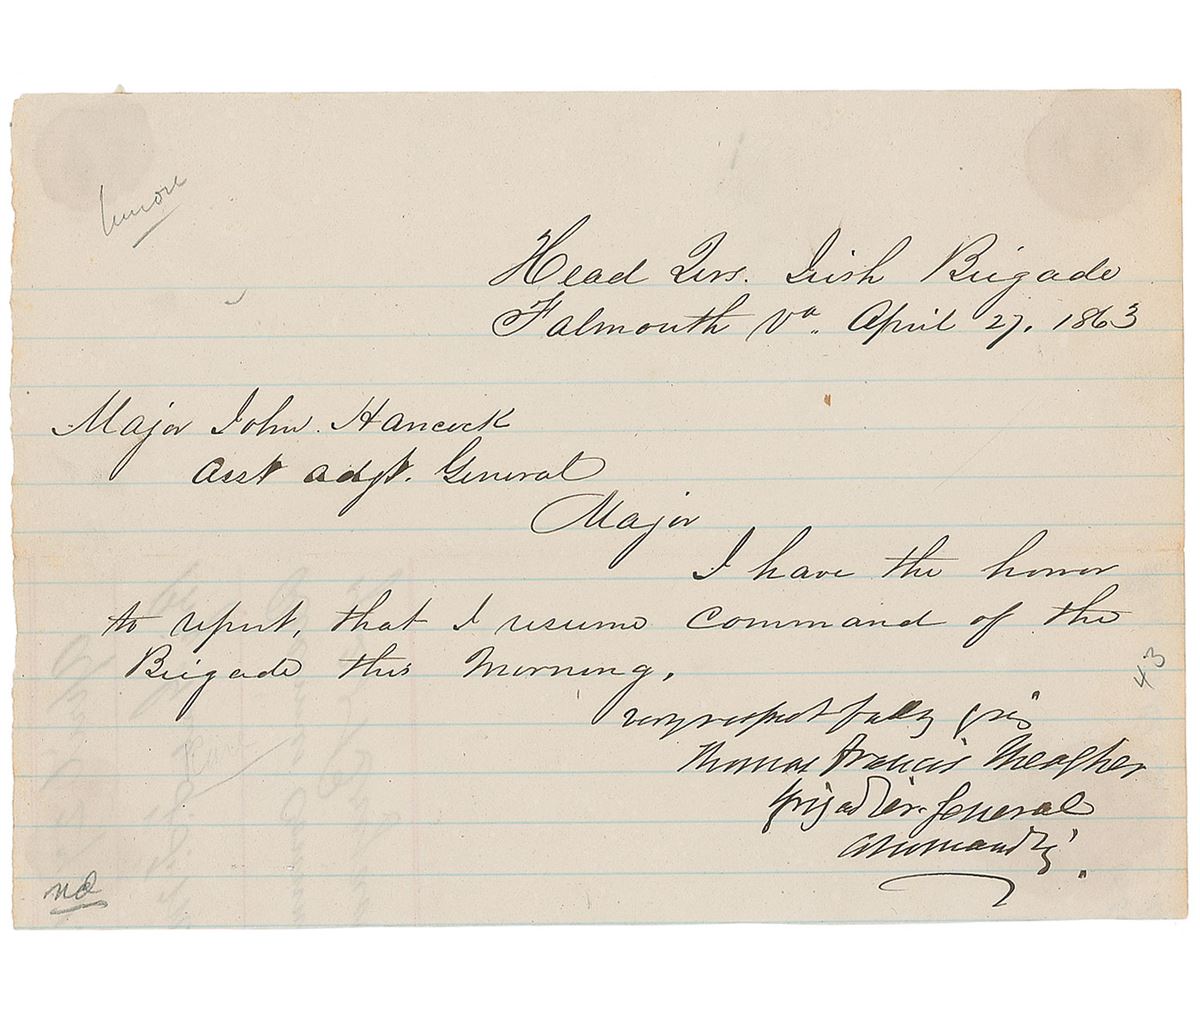 Head Qrs. Irish Brigade
Falmouth Va. April 27, 1863
Major John Hancock
Asst Adjt. General
Major
I have the honor
to report, that I resume Command of the
Brigade this Morning.
very respectfully yrs
Thomas Francis Meagher
Brigadier-General
Commandg.
43
nd